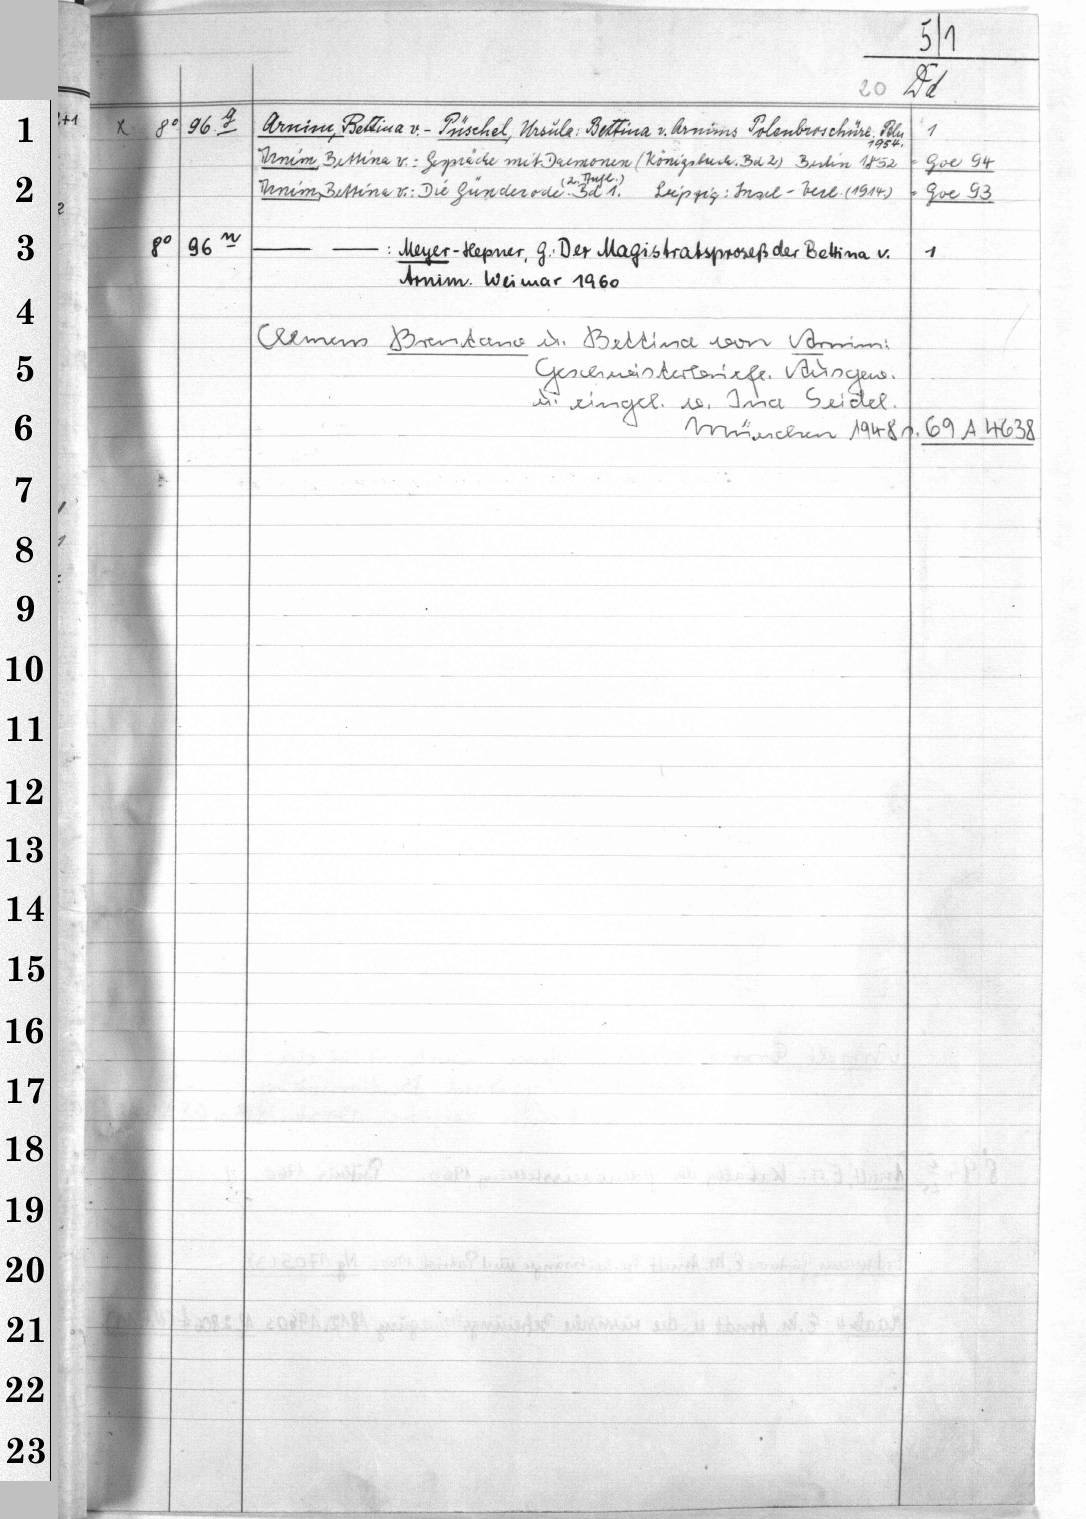 5|1
20 Dd
x 8° 96 g Arnim, Bettina v. - Püschel, Ursula: Bettina v. Arnims Polenbroschüre. Bln 1954. 1
Arnim, Bettina v.: Gespräche mit Daemonen (Königsbuch. Bd 2) Berlin 1852 = Goe 94
Arnim, Bettina v.: Die Günderode (2. Aufl.) Bd 1. Leipzig: Insel-Verl. (1914) = Goe 93
8° 96 n — — : Meyer-Hepner, G. Der Magistratsprozeß der Bettina v. 1
Arnim. Weimar 1960
Clemens Brentano u. Bettina von Arnim:
Geschwisterbriefe. Ausgew.
u. eingel. v. Ina Seidel.
München 1948 s. 69 A 4638
1
2
3
4
5
6
7
8
9
10
11
12
13
14
15
16
17
18
19
20
21
22
23